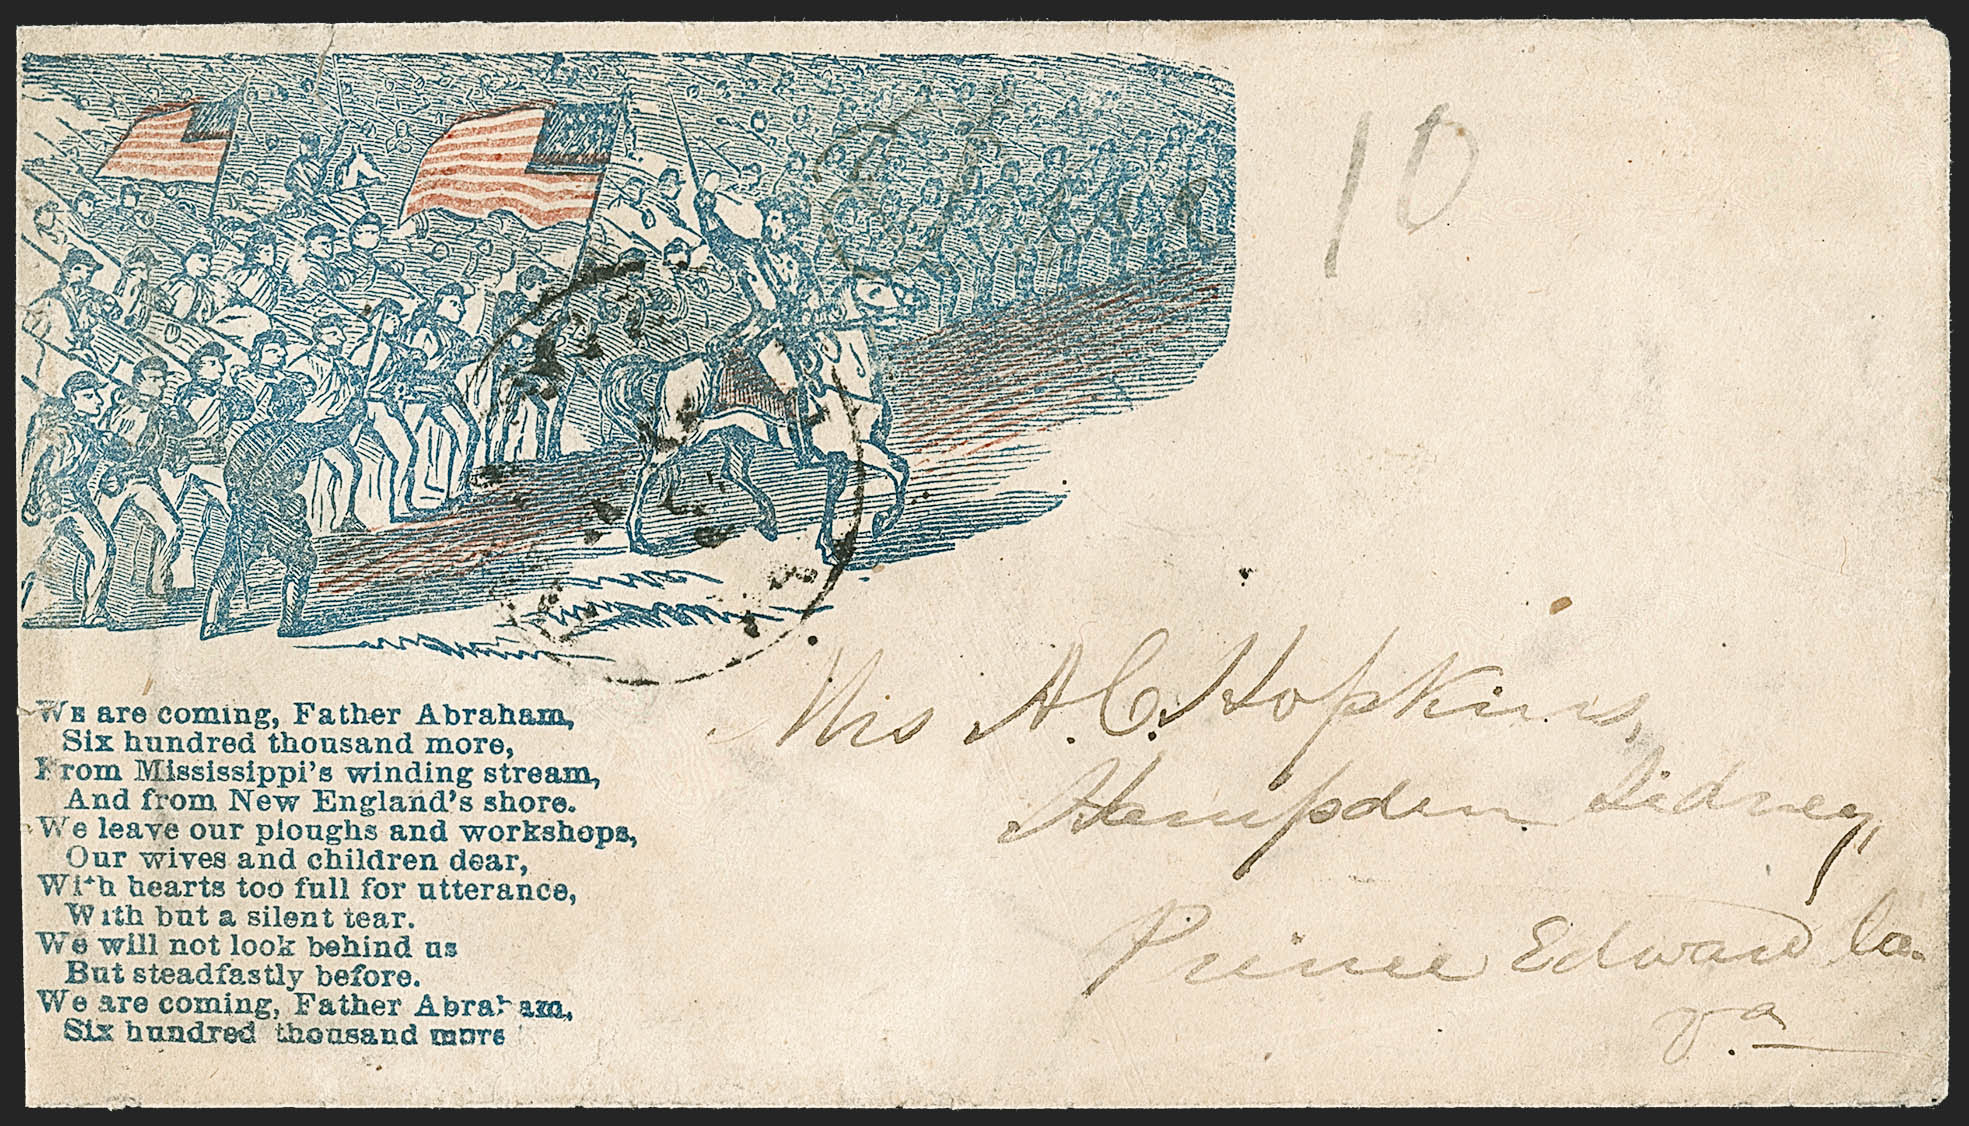 10
We are coming, Father Abraham,
Six hundred thousand more,
From Mississippi's winding stream,
And from New England's shore.
We leave our ploughs and workshops,
Our wives and children dear,
With hearts too full for utterance,
With but a silent tear.
We will not look behind us
But steadfastly before.
We are coming, Father Abraham,
Six hundred thousand more
Mrs A. C. Hopkins,
Hampden Sidney,
Prince Edward Co.
Va